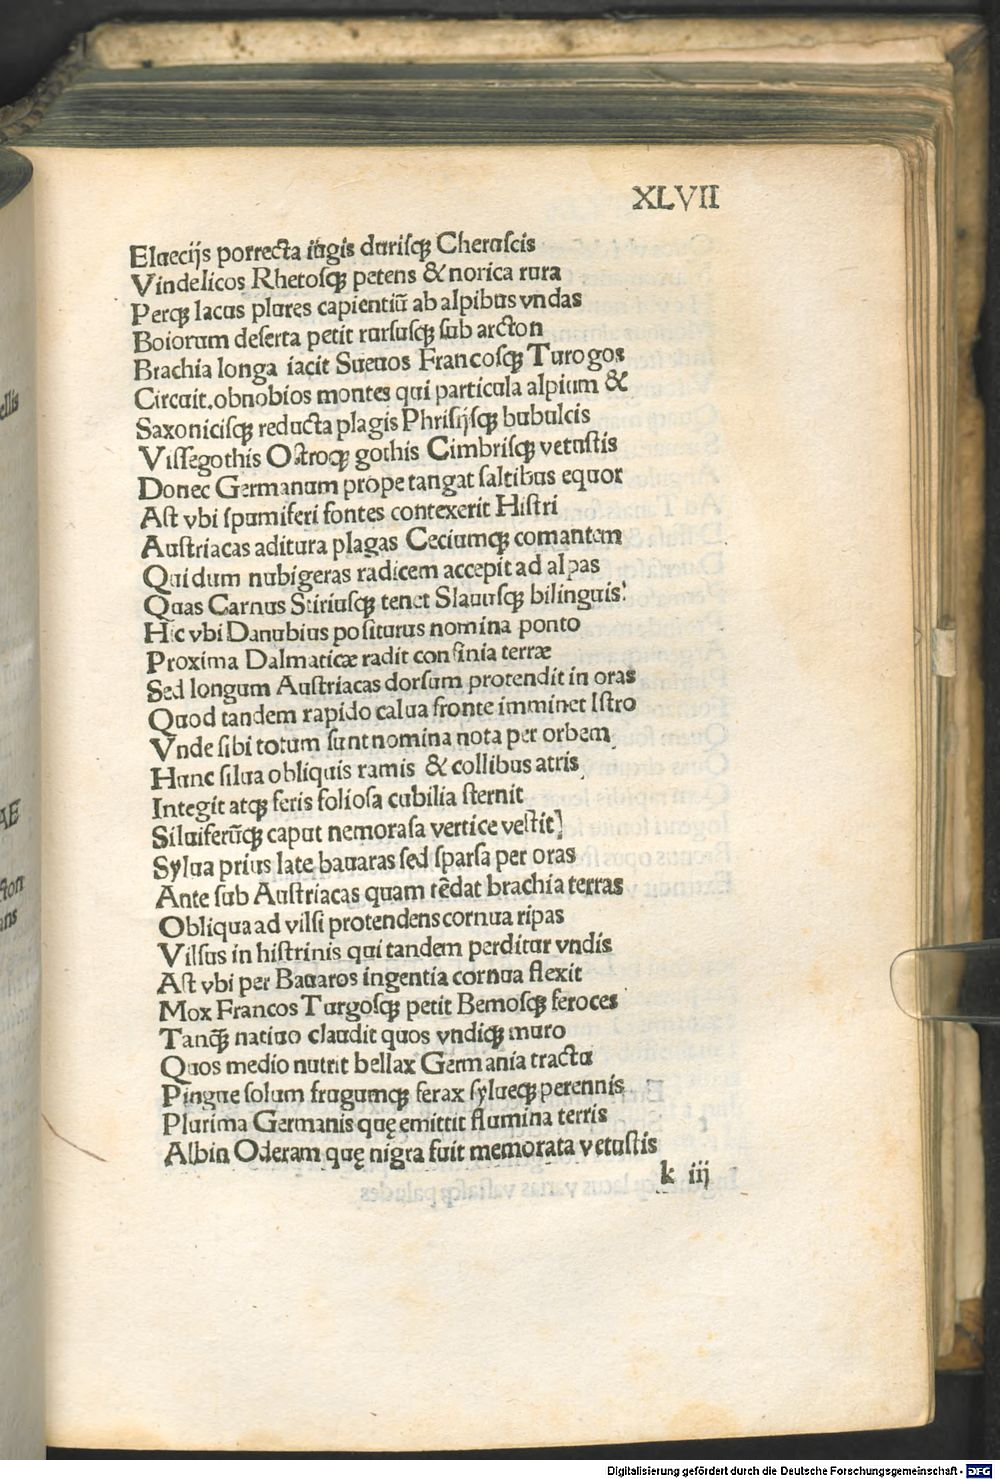 XLVII
Eluecijs porrecta iugis durisqꝫ Cheruscis
Vindelicos Rhetosqꝫ petens & norica rura
Perqꝫ lacus plures capientiũ ab alpibus vndas
Boiorum deserta petit rursusqꝫ sub arcton
Brachia longa iacit Sueuos Francosqꝫ Turogos
Circuit.obnobios montes qui particula alpium &
Saxonicisqꝫ reducta plagis Phrisijsqꝫ bubulcis
Vissegothis Ostroqꝫ gothis Cimbrisqꝫ vetustis
Donec Germanum prope tangat saltibus equor
Ast vbi spumiferi fontes contexerit Histri
Austriacas aditura plagas Ceciumqꝫ comantem
Qui dum nubigeras radicem accepit ad alpas
Quas Carnus Stiriusqꝫ tenet Slauusqꝫ bilinguis:
Hic vbi Danubius positurus nomina ponto
Proxima Dalmaticæ radit confinia terræ
Sed longum Austriacas dorsum protendit in oras
Quod tandem rapido calua fronte imminet Istro
Vnde sibi totum sunt nomina nota per orbem,
Hunc silua obliquis ramis & collibus atris,
Integit atqꝫ feris foliosa cubilia sternit
Siluiferũqꝫ caput nemorasa vertice vestit]
Sylua prius late bauaras sed sparsa per oras
Ante sub Austriacas quam tẽdat brachia terras
Obliqua ad vilsi protendens cornua ripas
Vilsus in histrinis qui tandem perditur vndis
Ast vbi per Bauaros ingentia cornua flexit
Mox Francos Turgosqꝫ petit Bemosqꝫ feroces
Tanqꝫ̃ natiuo claudit quos vndiqꝫ muro
Quos medio nutrit bellax Germania tractu
Pingue solum frugumqꝫ ferax syluęqꝫ perennis
Plurima Germanis quę emittit flumina terris
Albin Oderam quę nigra fuit memorata vetustis
k iij
ellis
AE
ston
ans
Digitalisierung gefördert durch die Deutsche Forschungsgemeinschaft - DFG